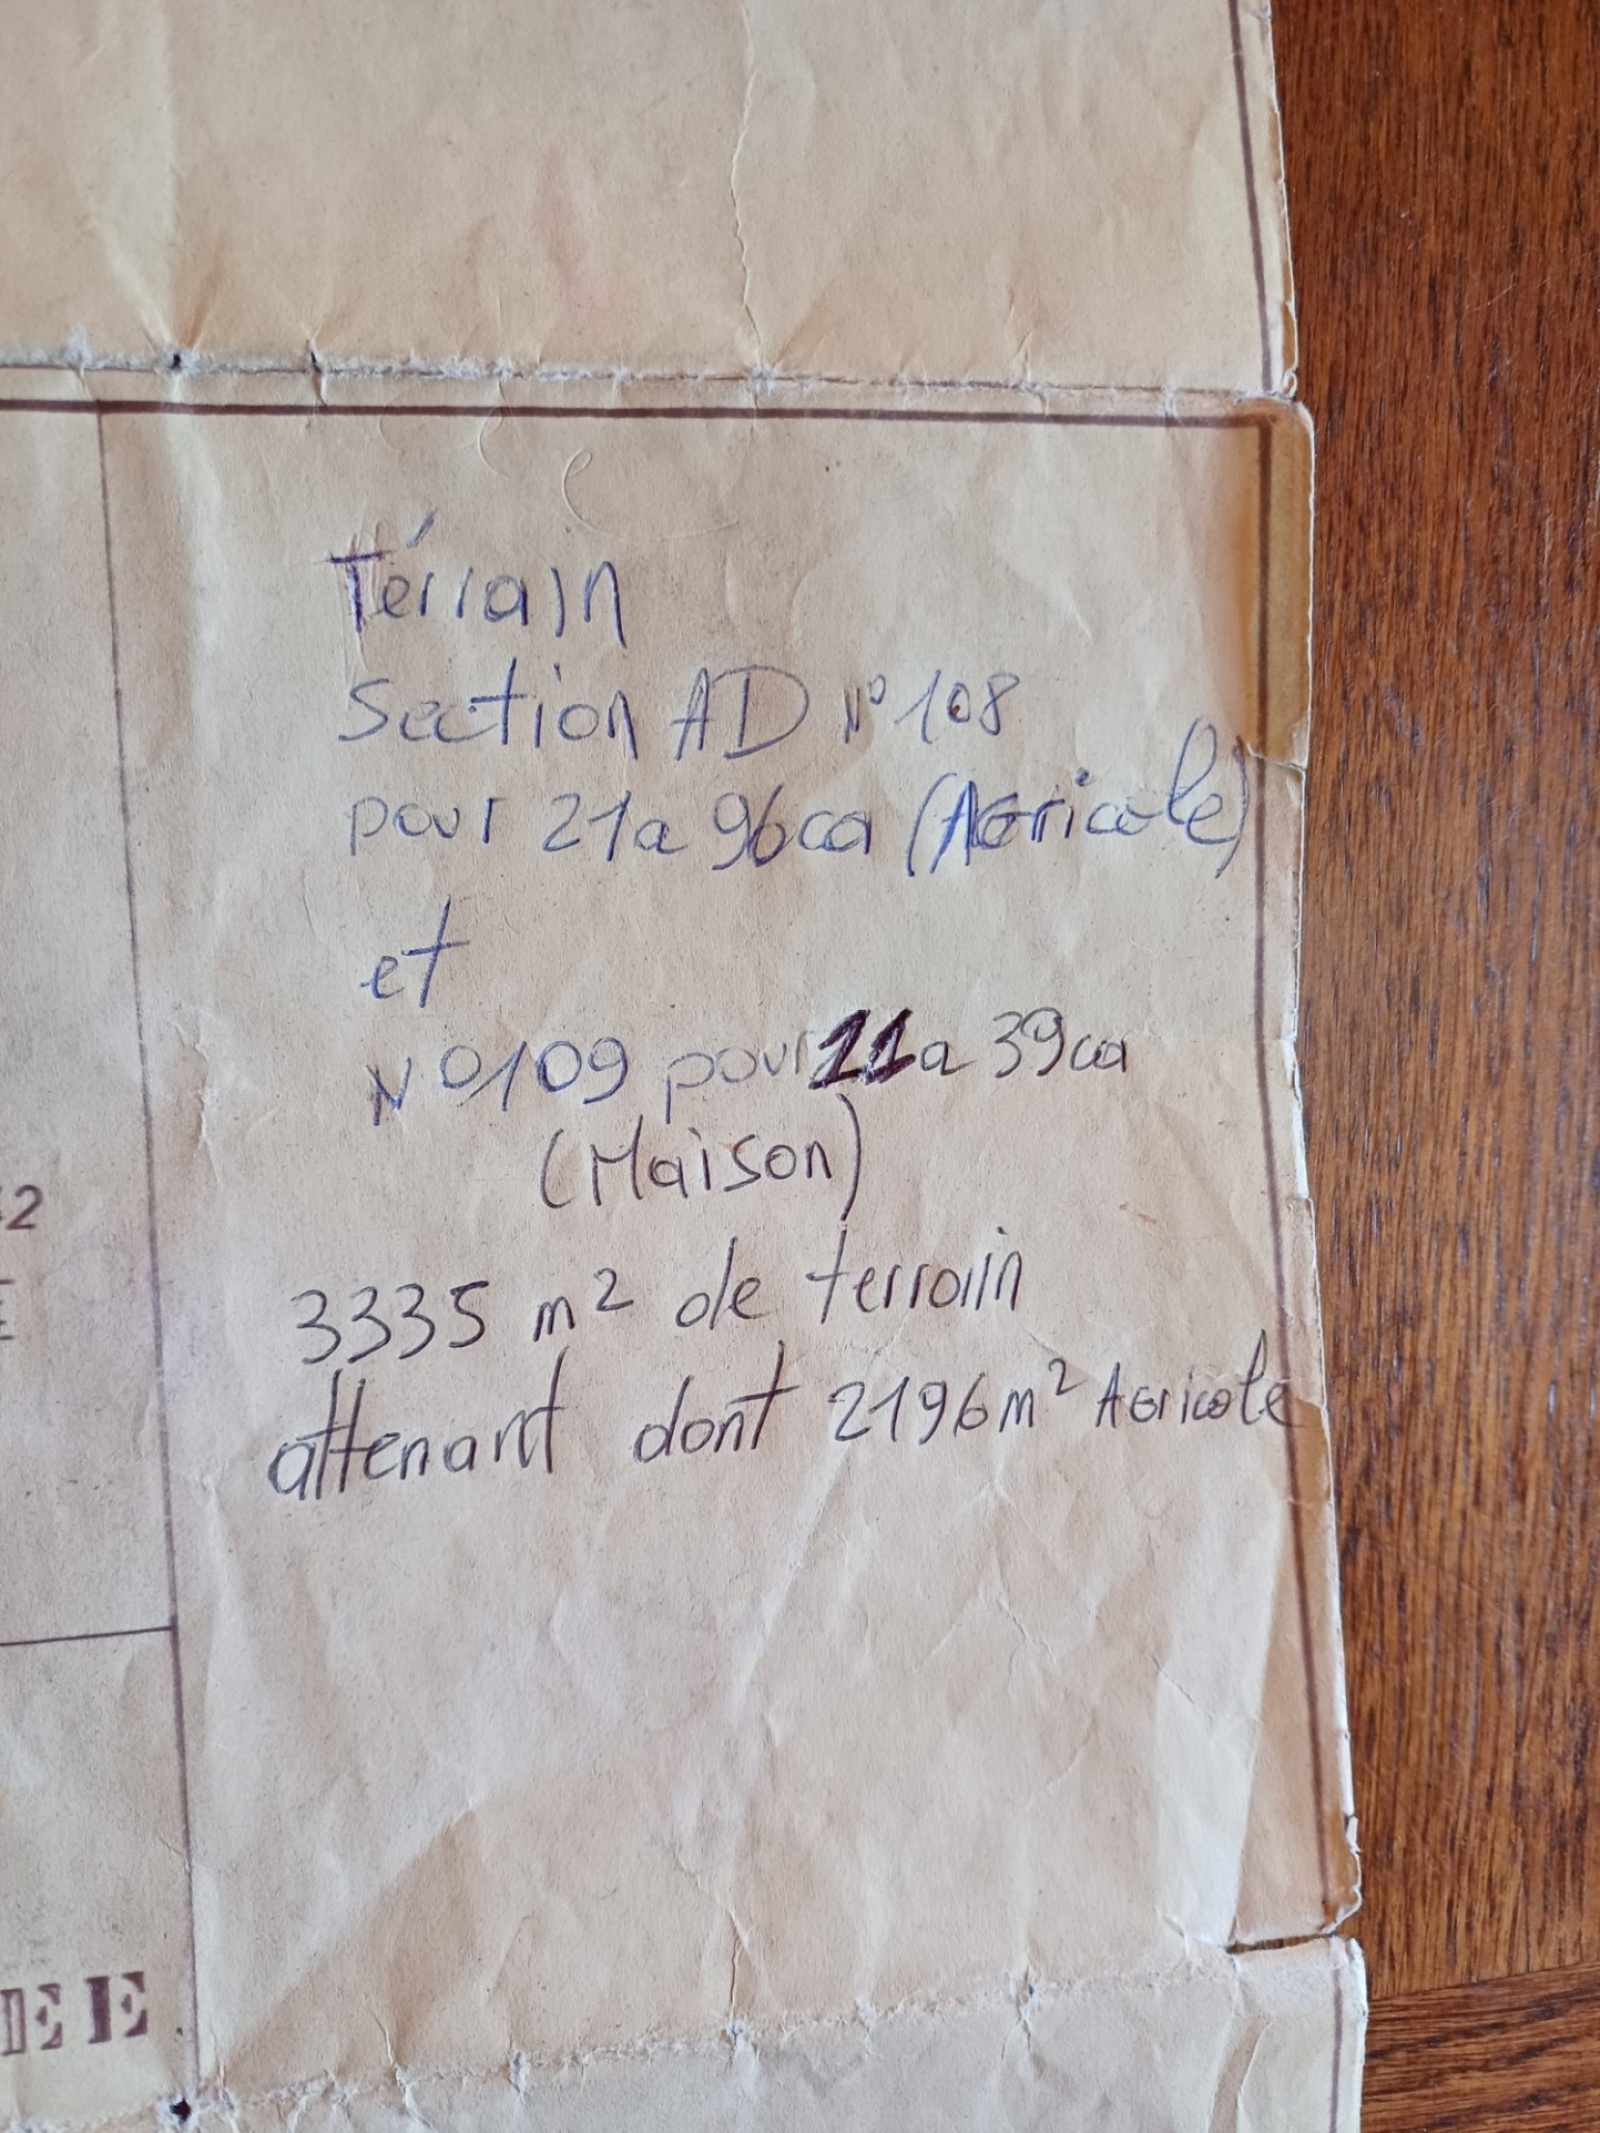 Térrain
Section AD N° 108
pour 21a 96ca (Agricole)
et
N°109 pour 11a 39ca
(Maison)
3335 m² de terrain
attenant dont 2196m² Agricole
EE